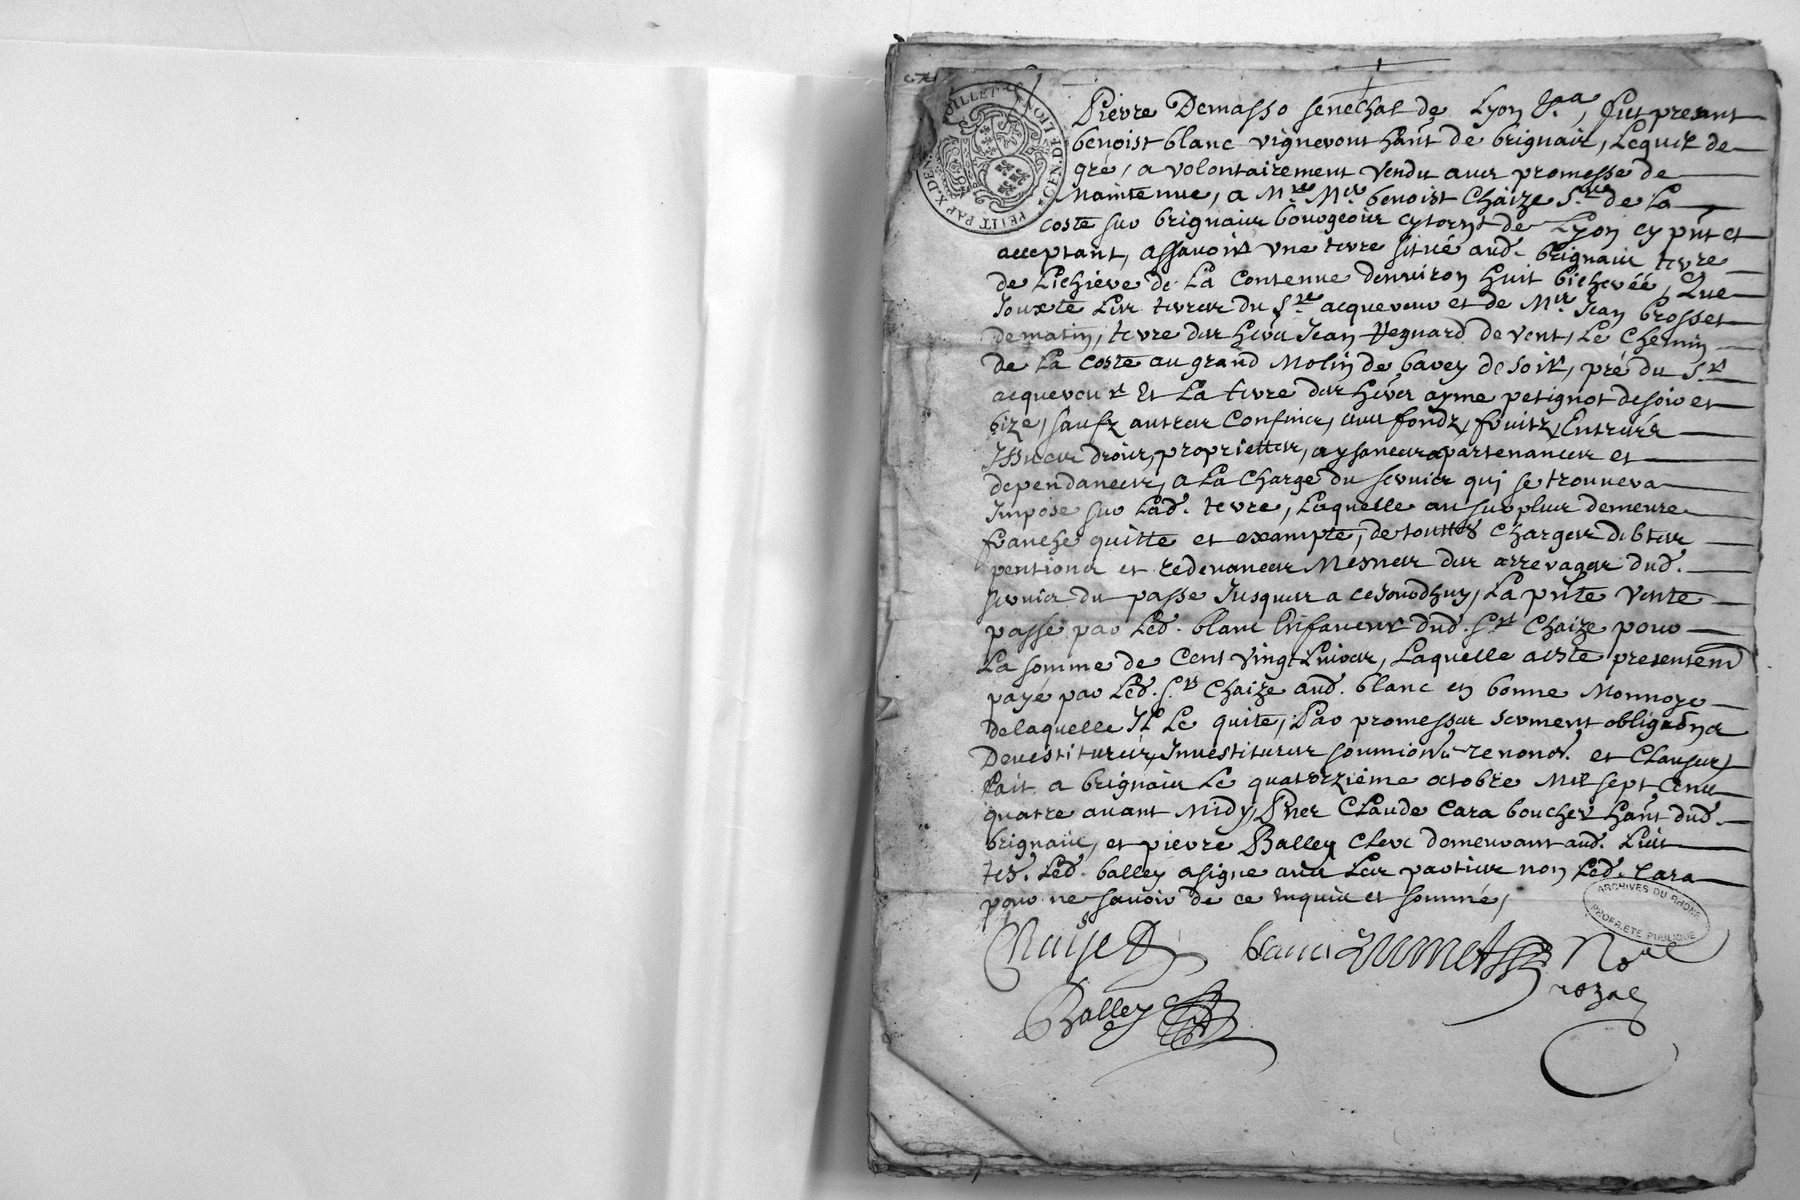 GEN. DE LION
PETIT PAP
Pierre Demasso senechal de Lyon Sca, fut presant
benoist blanc vigneront hañt de brignair, Lequel de
gré, a volontairement vendu avec promesse de
Maintenue, a Mre Mre benoist Chaize Sr de la
coste sur brignair bourgeoir cytoent de Lyon cy pñt et
acceptant, assavoir une terre situé aud. brignair terre
de Lichiere de La Contenue denviron huit bicherée, Que
Jouxte Ler terrer du Sr acquereur et de Mre Jean brosset
dematin, terre der hers Jean Reguard de vent, Le Chemin
de La Coste au grand Molin de barey de soir, pré du Sr
acquereur Et La terre der hers ayme petignot desoir et
bize, saufz autrer Confiner, avec fondz, fruitz, Entréer
Issuer droitz, proprietter, aysancer apartenancer et
dependancer, a La Charge du servicer qui se trouvera
Imposé sur Lad. terre, Laquelle au surplur demeure
franche quitte et exampte, de touttes Charger debter
pentioner et redevancer Mesmer der arrerager dud.
servicer du passé Jusquer a cejourdhuy, La pñte vente
passé par Led. blanc au faveur dud. Sr Chaize pour
La somme de Cent Vingt Livrer, Laquelle a esté presentemt
payé par Led. Sr Chaize aud. blanc en bonne Monnoye
delaquelle Il Le quite, Par promesser serment obligaõner
Devestiturer, Investiturer soumiõn renonõn et Clauser
fait a brignair Le quatorzième octobre Mil sept Cent
quatre avant Midy, Pñer Claude Cara boucher hañt dud.
brignair, et pierre Balley Clerc demeurant aud. Lieu
tes. Led. balley a signe avec Ler partier non Led. Cara
pour ne savoir de ce enquir et sommé,
ARCHIVES DU RHONE
PROPRIETE PUBLIQUE
Chaize blanc Nore
Balley rozal